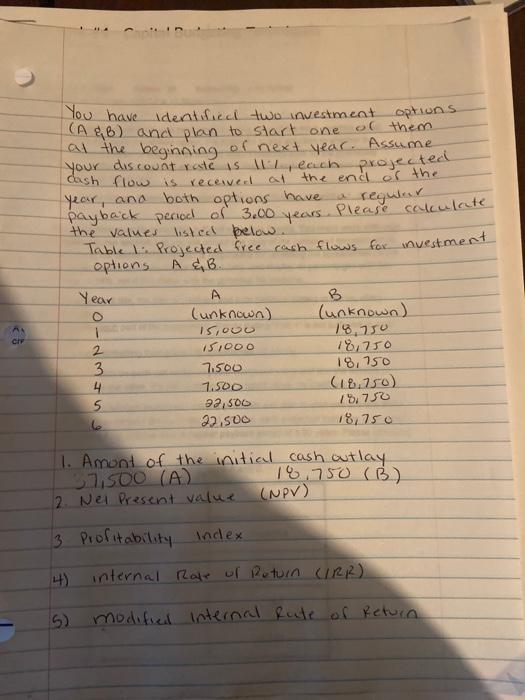 Capital
You have identified two investment options
(A & B) and plan to start one of them
at the beginning of next year. Assume
your discount rate is 11%, each projected
cash flow is received at the end of the
year, and both options have a regular
payback period of 3.00 years. Please calculate
the values listed below.
Table 1: Projected free cash flows for investment
options A & B.
Year A B
0 (unknown) (unknown)
1 15,000 18,750
2 15,000 18,750
3 7,500 18,750
4 7,500 (18,750)
5 22,500 18,750
6 22,500 18,750
1. Amont of the initial cash outlay
37,500 (A) 18,750 (B)
2. Net Present value (NPV)
3 Profitability index
4) internal Rate of Return (IRR)
5) modified internal Rate of Return